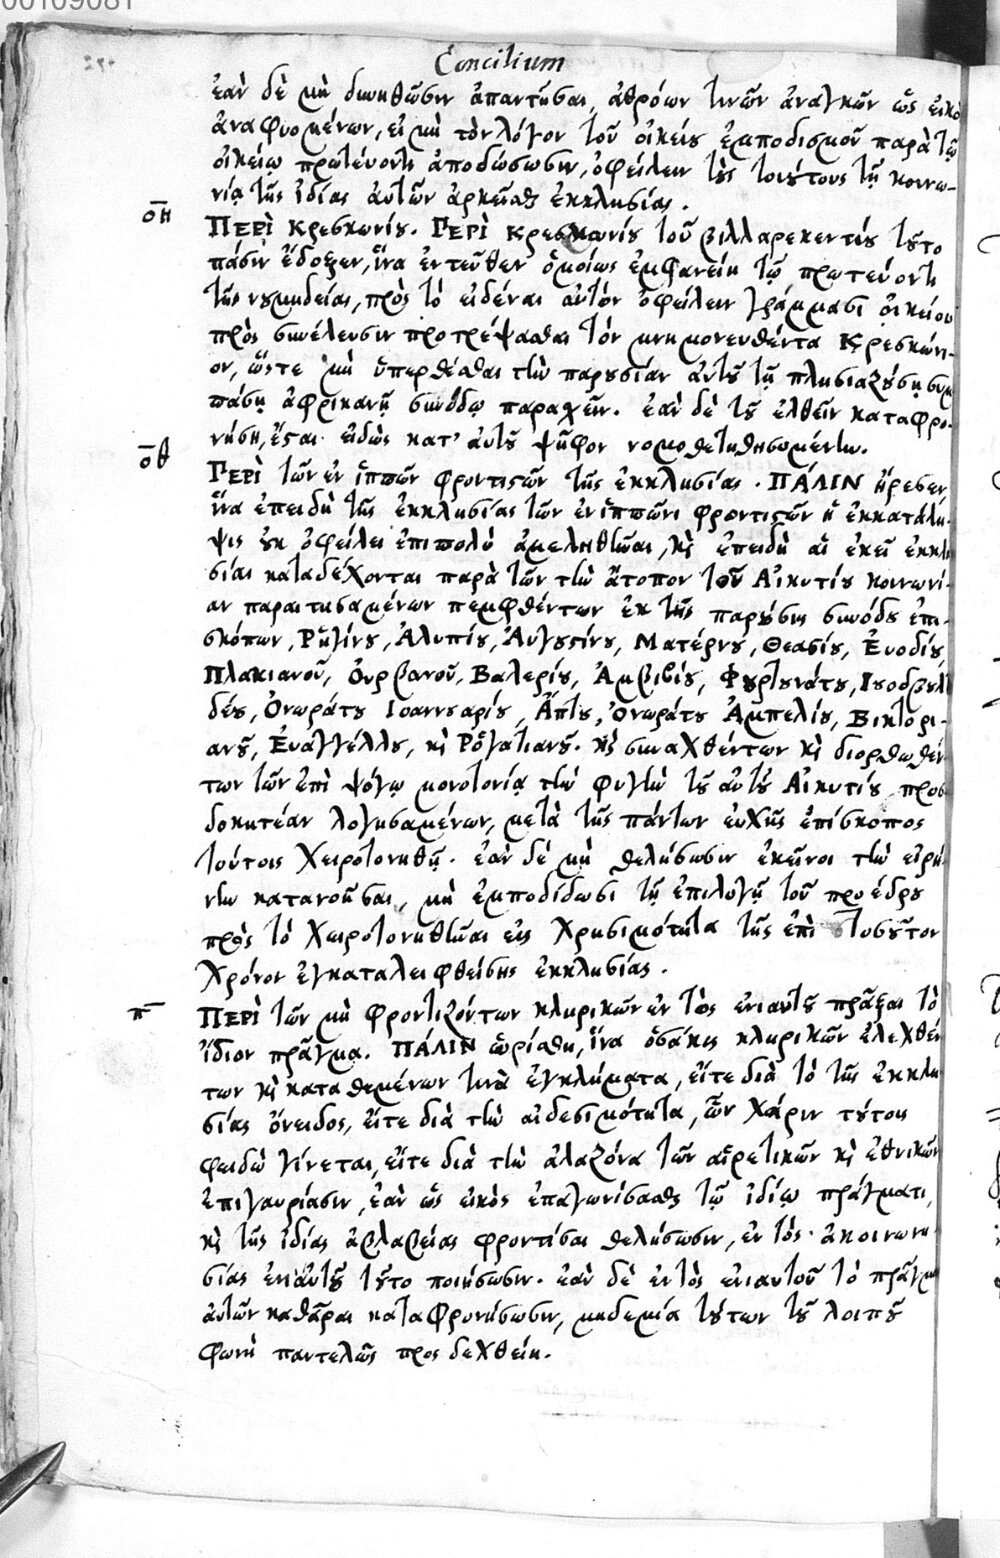 00109081
Concilium
ἐὰν δὲ μὴ δυνηθῶσιν ἀπαντῆσαι, ἀθρόων τινῶν ἀναγκῶν ὡς εἰκὸ
ἀναφυομένων, εἰ μὴ τὸν λόγον τοῦ οἰκείου ἐμποδισμοῦ παρὰ τῷ
οἰκείῳ πρωτεύοντι ἀποδώσωσιν, ὀφείλειν τοὺς τοιούτους τῇ κοινω-
νίᾳ τῆς ἰδίας αὐτῶν ἀρκεῖσθαι ἐκκλησίας.
οη ΠΕΡῚ Κρεσκωνίου. ΠΕΡῚ Κρεσκωνίου τοῦ βιλλαρεκεντίου τοῦτο
πάσιν ἔδοξεν, ἵνα ἐντεῦθεν ὁμοίως ἐμφανείη τῷ πρωτεύοντι
τῆς νουμηδείας, πρὸς τὸ εἰδέναι αὐτὸν ὀφείλειν γράμμασι οἰκείοις
πρὸς συνέλευσιν προτρέψασθαι τὸν μνημονευθέντα Κρεσκώνι-
ον, ὥστε μὴ ὑπερθέσθαι τὴν παρουσίαν αὐτοῦ τῇ πλησιαζούσῃ συμ
πάσῃ ἀφρικανῇ συνόδῳ παρασχεῖν. ἐὰν δὲ τοῦ ἐλθεῖν καταφρο-
νήσῃ, ἔσται εἰδὼς κατ' αὐτοῦ ψῆφον νομοθετηθησομένην.
οθ ΠΕΡῚ τῶν ἐν ἱππῶν φροντιστῶν τῆς ἐκκλησίας. ΠΆΛΙΝ ἤρεσεν,
ἵνα ἐπειδὴ τῆς ἐκκλησίας τῶν ἐν ἱππῶνι φροντιστῶν ἡ ἐκκατάλη-
ψις οὐκ ὀφείλει ἐπιπολὺ ἀμεληθῆναι, καὶ ἐπειδὴ αἱ ἐκεῖ ἐκκλη
σίαι καταδέχονται παρὰ τῶν τὴν ἄτοπον τοῦ Αἰκυτίου κοινωνί-
αν παραιτησαμένων πεμφθέντων ἐκ τῆς παρούσης συνόδου ἐπι-
σκόπων, Ῥηγίνου, Ἀλυπίου, Αὐγουστίνου, Ματέρνου, Θεασίου, Εὐοδίου,
Πλακιανοῦ, Οὐρβανοῦ, Βαλερίου, Ἀμβιβίου, Φουρτουνάτου, Κουοδβουλ
δέου, Ὀνωράτου Ιοαννουαρίου, Ἄπτου, Ὀνωράτου Ἀμπελίου, Βικτορι-
ανοῦ, Εὐαγγέλλου, καὶ Ῥογατιανοῦ. καὶ συναχθέντων καὶ διορθωθέν
των τῶν ἐπὶ ψόγῳ μονοτονίᾳ τὴν φυγὴν τοῦ αὐτοῦ Αἰκυτίου προσ
δοκητέαν λογησαμένων, μετὰ τῆς πάντων εὐχῆς ἐπίσκοπος
τούτοις χειροτονηθῇ. ἐὰν δὲ μὴ θελήσωσιν ἐκεῖνοι τὴν εἰρή-
νην κατανοῦσαι, μὴ ἐμποδίδωσι τῇ ἐπιλογῇ τοῦ προέδρου
πρὸς τὸ χειροτονηθῆναι εἰς χρησιμότητα τῆς ἐπὶ τοσοῦτον
χρόνον ἐγκαταλειφθείσης ἐκκλησίας.
π ΠΕΡῚ τῶν μὴ φροντιζόντων κληρικῶν ἐντὸς ἐνιαυτοῦ πρᾶξαι τὸ
ἴδιον πρᾶγμα. ΠΆΛΙΝ ὡρίσθη, ἵνα ὁσάκις κληρικῶν ἐλεχθέν
των καὶ καταθεμένων τινὰ ἐγκλήματα, εἴτε διὰ τὸ τῆς ἐκκλη
σίας ὄνειδος, εἴτε διὰ τὴν αἰδεσιμότητα, ὧν χάριν τούτοις
φειδὼ γίνεται, εἴτε διὰ τὴν ἀλαζόνα τῶν αἱρετικῶν καὶ ἐθνικῶν
ἐπιγαυρίασιν, ἐὰν ὡς εἰκὸς ἐπαγωνίσασθαι τῷ ἰδίῳ πράγματι,
καὶ τῆς ἰδίας ἀβλαβείας φροντίσαι θελήσωσιν, ἐντὸς ἀκοινωνη-
σίας ἐνιαυτοῦ τοῦτο ποιήσωσιν. ἐὰν δὲ ἐντὸς ἐνιαυτοῦ τὸ πρᾶγμα
αὐτῶν καθᾶραι καταφρονήσωσιν, μηδεμία τούτων τοῦ λοιποῦ
φωνὴ παντελῶς προσδεχθείη.